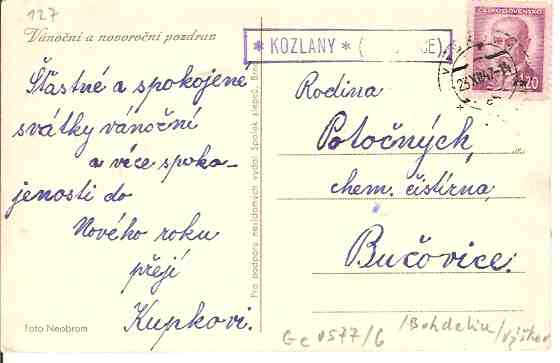 127
Vánoční a novoroční pozdrav
Šťastné a spokojené
svátky vánoční
a více spoko-
jenosti do
Nového roku
přejí
Kupkovi.
Foto Neobrom
Pro podporu nevidomých vydal Spolek slepců, Brno
* KOZLANY * (
ČESKOSLOVENSKO
Rodina
Potočných,
chem. čistírna,
Bučovice.